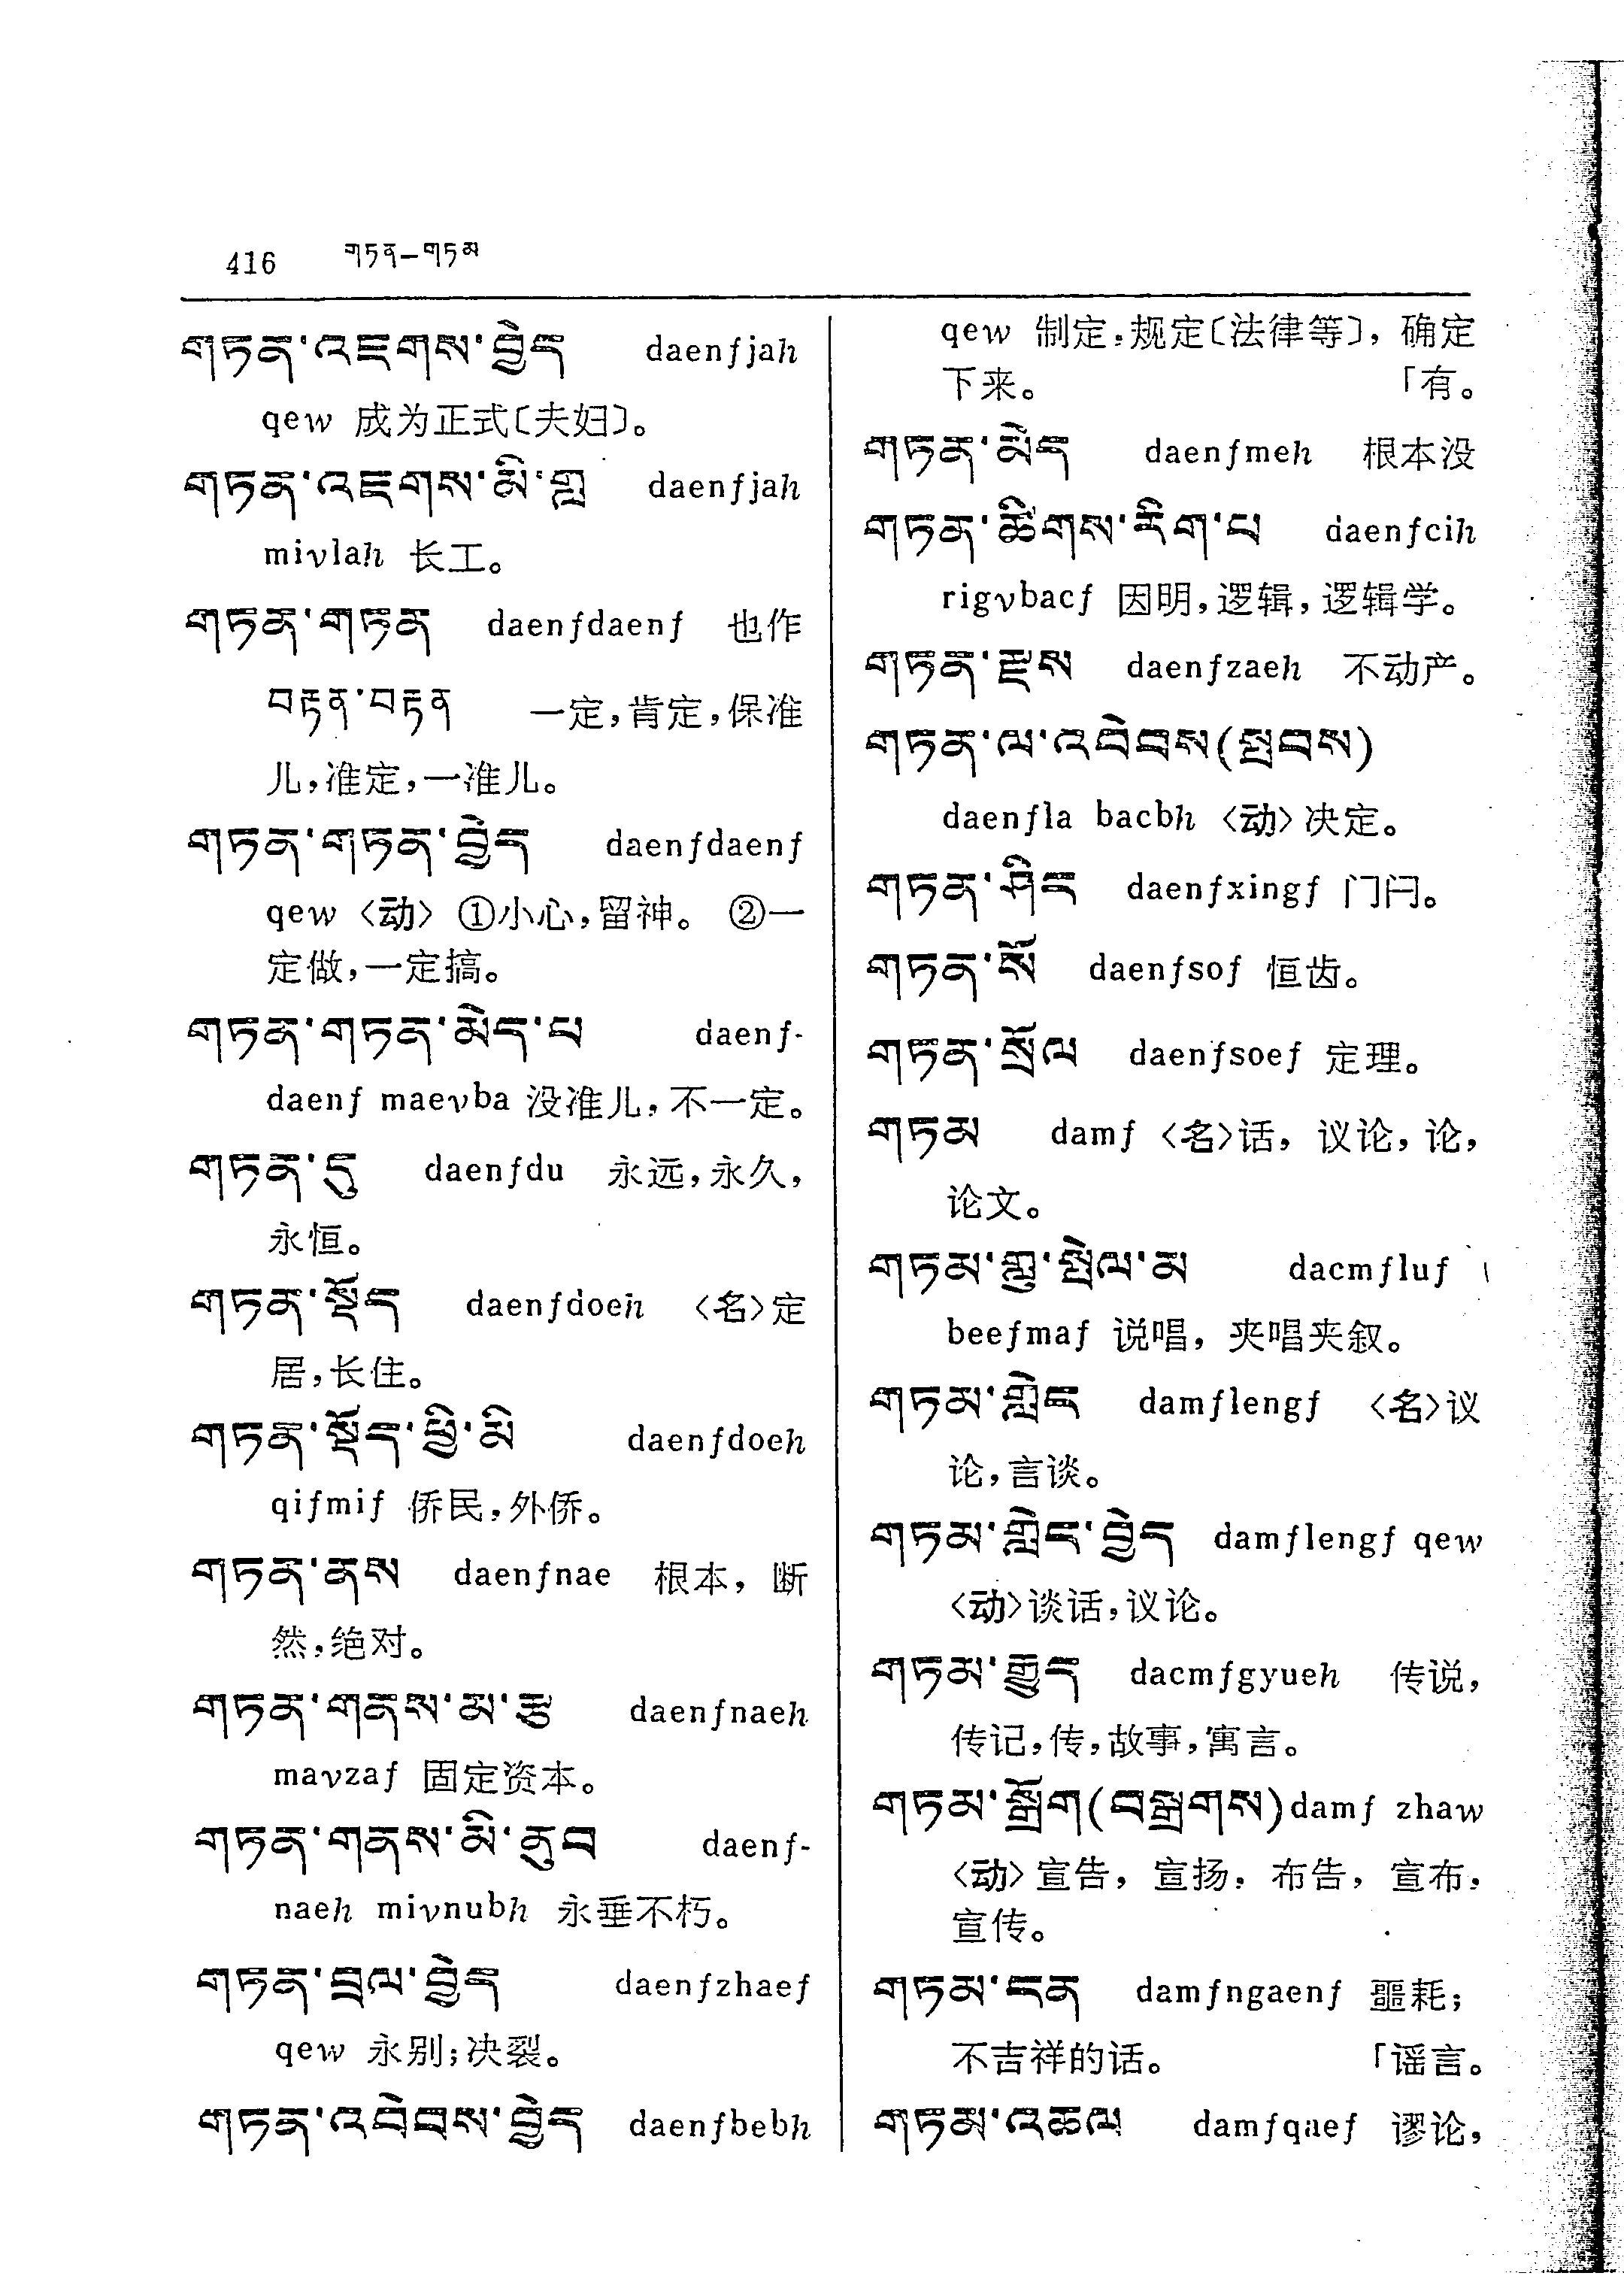 416 གཏན–གཏམ
གཏན་འཇགས་བྱེད daenfjah
qew 成为正式〔夫妇〕。
གཏན་འཇགས་མི་གླ daenfjah
mivlah 长工。
གཏན་གཏན daenfdaenf 也作
བརྟན་བརྟན 一定,肯定,保准
儿,准定,一准儿。
གཏན་གཏན་བྱེད daenfdaenf
qew 〈动〉 ①小心,留神。 ②一
定做,一定搞。
གཏན་གཏན་མེད་པ daenf-
daenf maevba 没准儿,不一定。
གཏན་དུ daenfdu 永远,永久,
永恒。
གཏན་སྡོད daenfdoeh 〈名〉定
居,长住。
གཏན་སྡོད་ཕྱི་མི daenfdoeh
qifmif 侨民,外侨。
གཏན་ནས daenfnae 根本, 断
然,绝对。
གཏན་གནས་མ་རྩ daenfnaeh
mavzaf 固定资本。
གཏན་གནས་མི་ནུབ daenf-
naeh mivnubh 永垂不朽。
གཏན་བྲལ་བྱེད daenfzhaef
qew 永别;决裂。
གཏན་འབེབས་བྱེད daenfbebh
qew 制定,规定〔法律等〕, 确定
下来。 「有。
གཏན་མེད daenfmeh 根本没
གཏན་ཚིགས་རིག་པ daenfcih
rigvbacf 因明,逻辑,逻辑学。
གཏན་རྫས daenfzaeh 不动产。
གཏན་ལ་འབེབས(ཕབས)
daenfla bacbh 〈动〉决定。
གཏན་ཤིང daenfxingf 门闩。
གཏན་སོ daenfsof 恒齿。
གཏན་སྲོལ daenfsoef 定理。
གཏམ damf 〈名〉话, 议论, 论,
论文。
གཏམ་གླུ་སྤེལ་མ dacmfluf
beefmaf 说唱, 夹唱夹叙。
གཏམ་གླེང damflengf 〈名〉议
论,言谈。
གཏམ་གླེང་བྱེད damflengf qew
〈动〉谈话,议论。
གཏམ་རྒྱུད dacmfgyueh 传说,
传记,传,故事,寓言。
གཏམ་སྒྲོག(བསྒྲགས)damf zhaw
〈动〉宣告, 宣扬, 布告, 宣布,
宣传。
གཏམ་ངན damfngaenf 噩耗;
不吉祥的话。 「谣言。
གཏམ་འཆལ damfqaef 谬论,